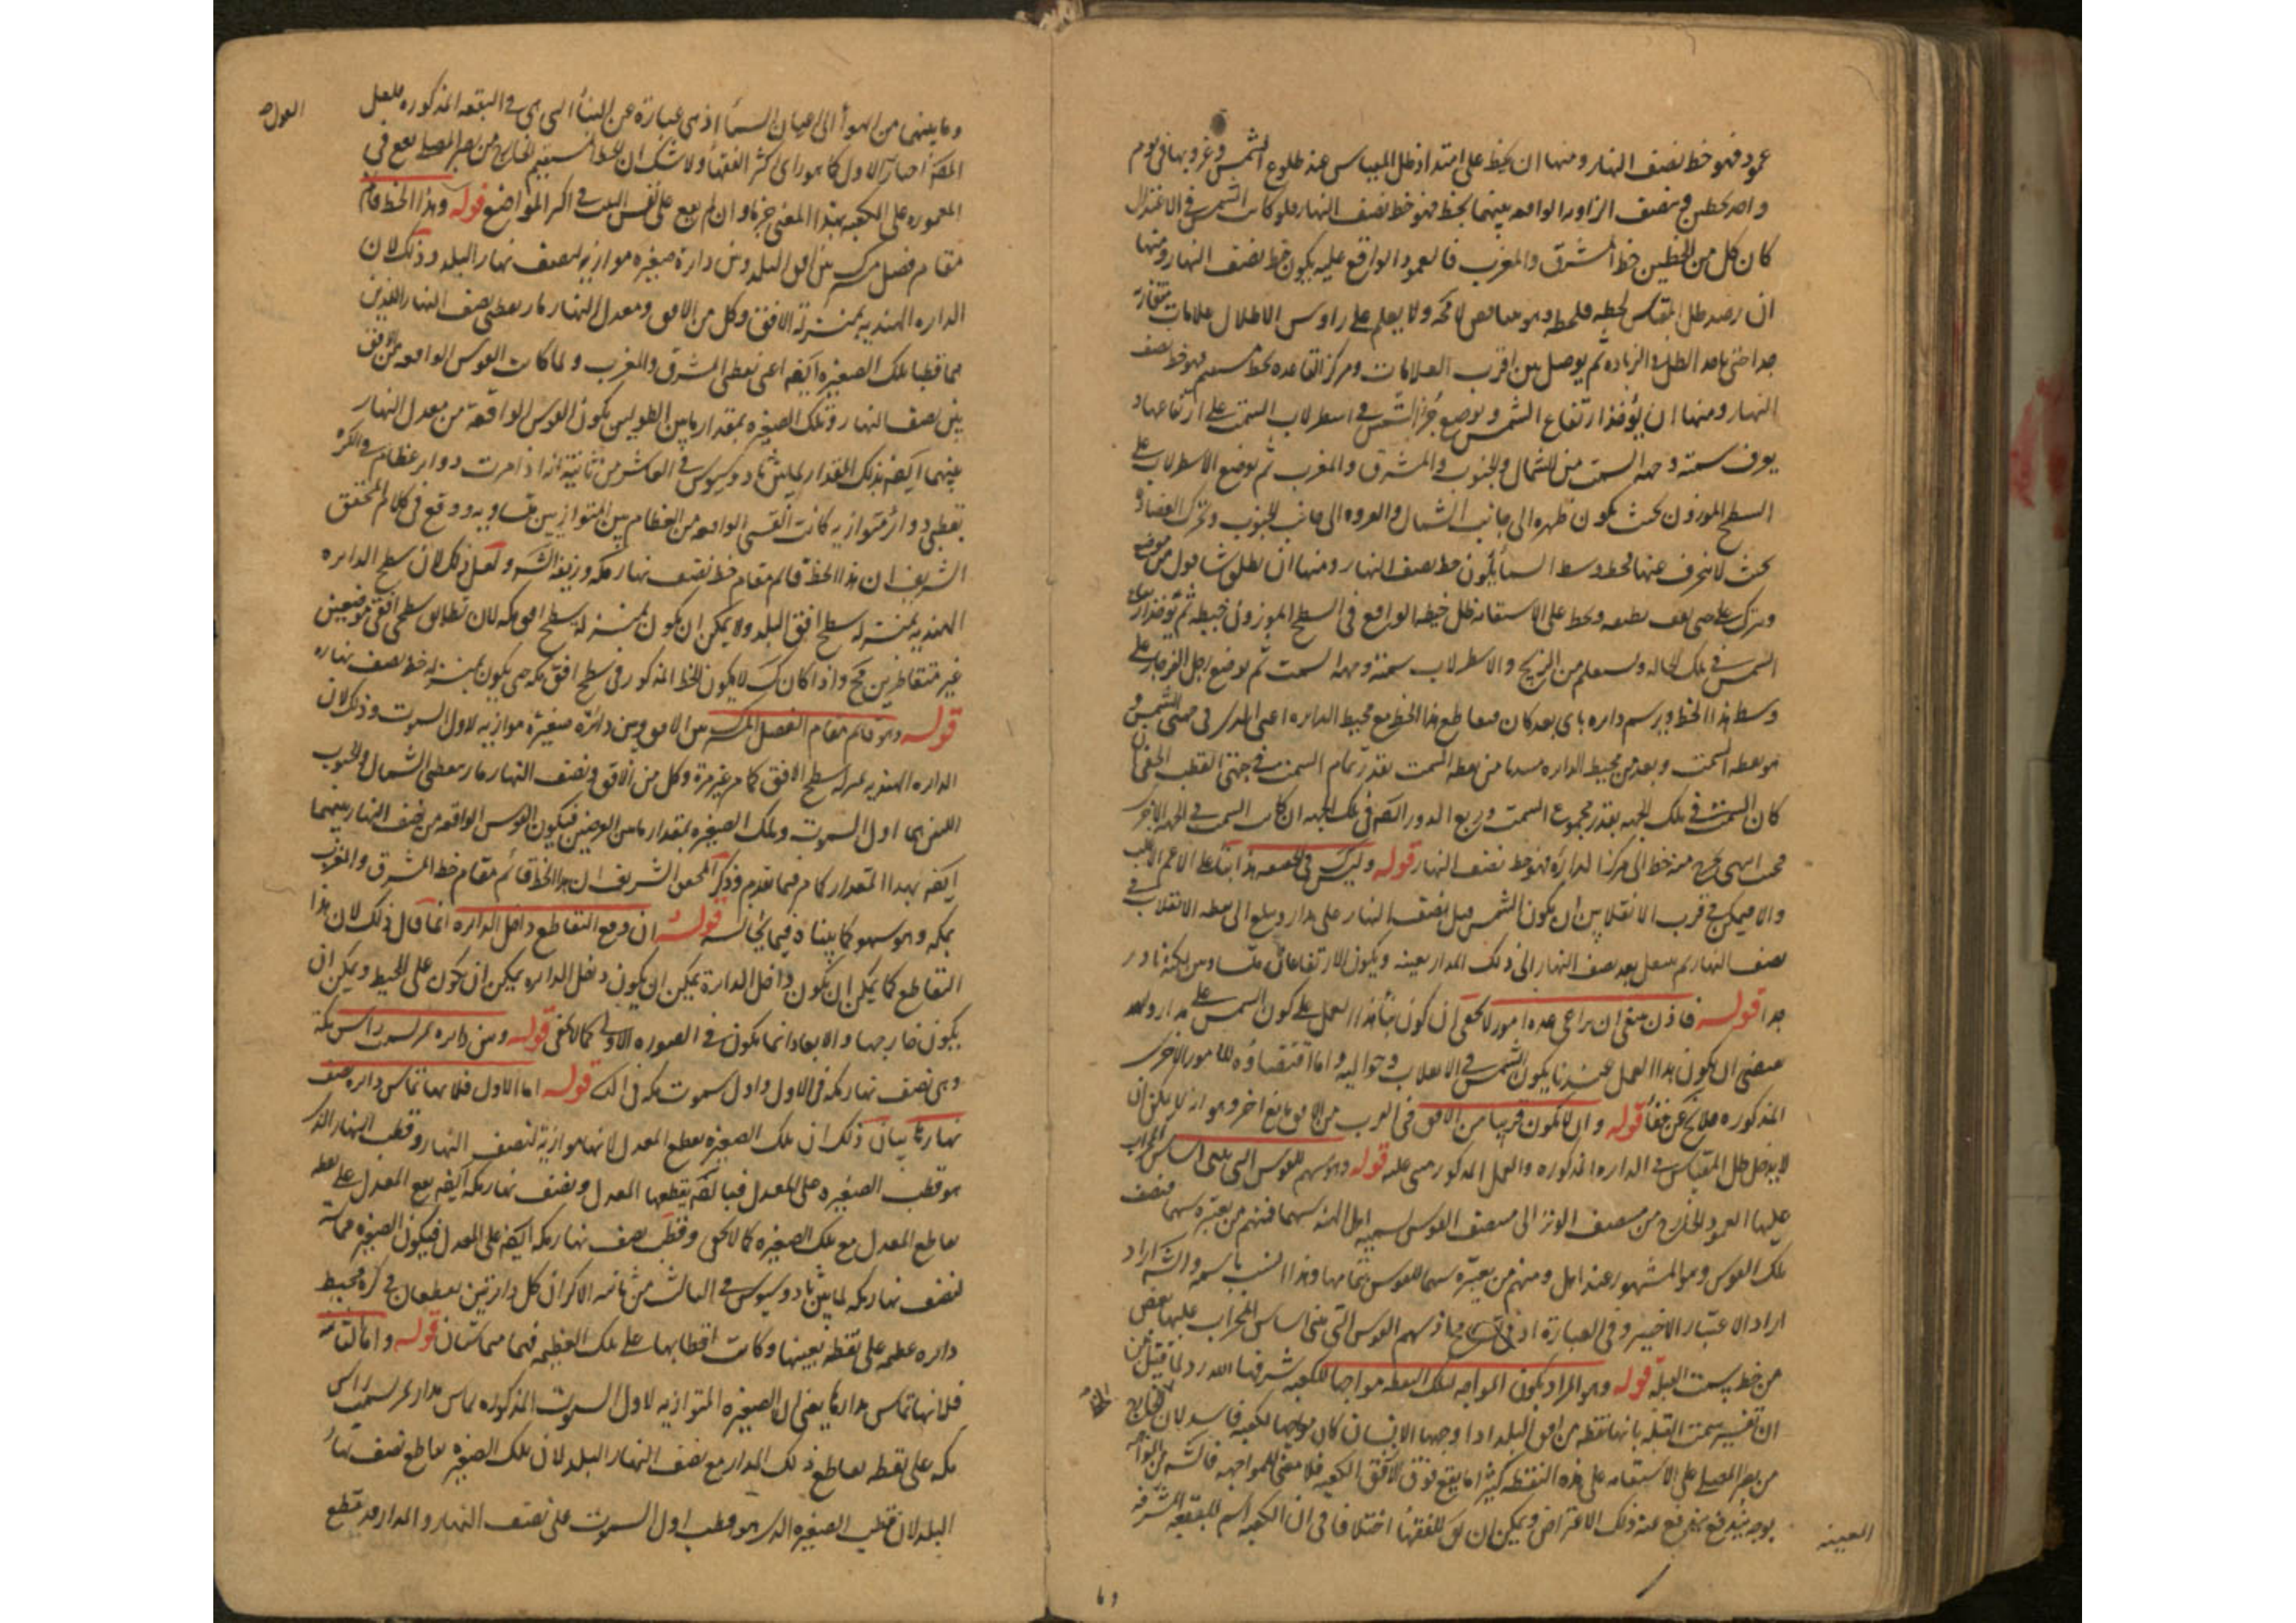 عمود فهو خط نصف النهار ومنها ان يخط على امتداد ظل المقياس عند طلوع الشمس وغروبها في يوم
واحد بخطين وينصف الزاويه الواقعه بينهما بخط فهو خط نصف النهار فلو كانت الشمس في الاعتدال
كان كل من الخطين خط المشرق والمغرب فالعمود الواقع عليه يكون خط نصف النهار ومنها
ان رصد ظل المقياس لحظه فلحظه وهو متناقص لا محه ولا يعلم على راوس الاظلال علامات متقاربة
جدا حتى ياخذ الظل في الزياده ثم يوصل بين اقرب العلامات ومركز القاعده بخط مستقيم فهو خط نصف
النهار ومنها ان يؤخذ ارتفاع الشمس ويوضع جزء الشمس في اسطرلاب السمت على ارتفاعها و
يعرف سمته وجهه السمت من الشمال والجنوب والمشرق والمغرب ثم يوضع الاسطرلاب على
السطح الموزون بحيث يكون ظهره الى جانب الشمال والعروه الى جانب الجنوب وتحرك العضاده
بحيث لا ينحرف عنها فخط وسط السماء يكون خط نصف النهار ومنها ان يعلق شاقول من موضع
ويترك حتى يقف بطبعه ويخط على الاستقامه ظل خيطه الواقع في السطح الموزون بخيطه ثم يؤخذ ارتفاع
الشمس في تلك الحاله ويستعلم من الزيج والاسطرلاب سمته وجهه السمت ثم يوضع رجل الفرجار على
وسط هذا الخط ويرسم دايره باي بعد كان فتقاطع هذا الخط مع محيط الدايره اعني الذي في جهتي الشمس
هو نقطه السمت وبعد من محيط الدايره مبتدا من نقطه السمت بقدر تمام السمت في جهتي القطب الخفي ان
كان السمت في تلك الجهه بقدر مجموع السمت وربع الدور ايضا في تلك الجهه ان كانت السمت في الجهه الاخرى
فحيث انتهى يخرج منه خط الى مركز الدايره فهو خط نصف النهار قوله وليس في الحقيقه هذا بناء على الاعم الاغلب
والا فيمكن في قرب الانقلابين ان يكون الشمس قبل نصف النهار على مدار ويبلغ الى نقطه الانقلاب في
نصف النهار ثم ينتقل بعد نصف النهار الى ذلك المدار بعينه ويكون الارتفاعان متساويين لكنه نادر
جدا قوله فاذن ينبغي ان يراعي عده امور لا يخفى ان كون بناء هذا العمل على كون الشمس على مدار واحد
يقتضي ان يكون هذا العمل عندنا يكون الشمس في الانقلاب وحواليه واما اقتضاؤه للامور الاخرى
المذكوره فلا يخ عن خفاء قوله وان لا يكون قريبا من الافق في القرب من الافق مانع اخر وهو انه لا يمكن ان
لا يدخل ظل المقياس في الدايره المذكوره والعمل المذكور مبني عليه قوله وهو سهم للقوس التي يبنى اساس المحراب
عليها العمود الخارج من منتصف الوتر الى منتصف القوس يسميه اهل الهندسه سهما فمنهم من يعتبره سهما لنصف
تلك القوس وهو المشهور عند اهل ومنهم من يعتبره سهما للقوس بتمامها وهذا انسب باسمه والشه اراد
اراد الاعتبار الاخير وفي العباره ادنى تسامح فان سهم القوس التي يبنى اساس المحراب عليها بعض
من خط سمت القبلة قوله وهو المراد بكون المواجه لتلك النقطه مواجها للكعبه شرفها الله رد لما قيل من
ان تفسير سمت القبلة بانها نقطه من افق البلد اذا واجهها الانسان كان مواجها للكعبه فاسد لان الخارج
من بصر المصلي على الاستقامه على هذه النقطه كثيرا ما يقع فوق الافق الكعبه فلا معنى للمواجهه فالشه من المواجهه
بوجه يندفع عنه ذلك الاعتراض ويمكن ان يق للفقهاء اختلافا في ان الكعبه اسم للبقعه المشرفه
المعينه
وما
وما بينهما من الهواء الى عنان السماء اذ هي عبارة عن البناء التي هي في البقعه المذكوره فلعل
القول
المصه اختار الاول كما هو راى اكثر الفقهاء ولا شك ان الخط المستقيم الخارج من بصر المصلي يقع في
المعموره على الكعبه بهذا المعنى جزما وان لم يقع على نفس البيت في اكثر المواضع قوله وهذا الخط قائم
مقام فصل مشترك بين افق البلد وبين دايرة صغيره موازيه لنصف نهار البلد وذلك لان
الدايره الهنديه بمنزلة الافق وكل من الافق ومعدل النهار مار بقطبي نصف النهار اللذين
هما قطبا تلك الصغيره ايضا اعني نقطتي المشرق والمغرب ولما كانت القوس الواقعه من الافق
بين نصف النهار وتلك الصغيره بمقدار ما بين الطولين يكون القوس الواقعة من معدل النهار
بينهما ايضا بذلك المقدار لما بين ثاودوسيوس في العاشر من ثانية انه اذا مرت دوائر عظام في الكره
بقطبي دوائر متوازيه كانت القسي الواقعه من العظام بين المتوازيين متساويه ووقع في كلام المحقق
الشريف ان هذا الخط قائم مقام خط نصف نهار مكه وزيفه الشه ولعل ذلك لان سطح الدايره
الهنديه بمنزله سطح افق البلد ولا يمكن ان يكون بمنزله سطح افق مكه لان تطابق سطحي افقي موضعين
غير متقاطرين مح واذا كان كذلك لا يكون الخط المذكور في سطح افق مكه حتى يكون بمنزله خط نصف نهاره
قوله وهو قائم مقام الفصل المشترك بين الافق وبين دائرة صغيره موازيه لاول السموت وذلك لان
الدايره الهنديه بمنزله سطح الافق كما مر غير مرة وكل من الافق ونصف النهار مار بقطبي الشمال والجنوب
اللذين هما اول السموت وتلك الصغيره بمقدار ما بين العرضين فيكون القوس الواقعه من نصف النهار بينهما
ايضا بهذا المقدار كما مر فيما تقدم وذكر المحقق الشريف ان هذا الخط قائم مقام خط المشرق والمغرب
بمكه وهو سهو كما بينا قوله ان وقع التقاطع داخل الدايره انما قال ذلك لان هذا
التقاطع كما يمكن ان يكون داخل الدايرة يمكن ان يكون على المحيط ويمكن ان
يكون خارجها والابعاد انما يكون في الصوره الاولى كما لا يخفى قوله وبين دايره تمر بسمت راس مكة
وهي نصف نهار مكه في الاول واول سموت مكه في الثاني قوله اما الاول فلانها تماس دايره نصف
نهارها بيان ذلك ان تلك الصغيره يقطع المعدل لانها موازية لنصف النهار وقطب النهار الذي
هو قطب الصغيره على المعدل فبالضروره يقطعها المعدل ونصف نهار مكه ايضا يقع المعدل على نقطه
تقاطع المعدل مع تلك الصغيره كما لا يخفى وقطب نصف نهار مكه ايضا على المعدل فيكون الصغيره مماسة
لنصف نهار مكه لما بين ثاودوسيوس في الثالث من ثانيه الاكر ان كل دايرتين يقطعان في كره محيط
دايره عظيمه على نقطه بعينها وكانت اقطابها على تلك العظيمه فهما متماستان قوله واما الثانيه
فلانها تماس مدارها يعني ان الصغيره المتوازيه لاول السموت المذكوره تماس مدار تمر بسمت راس
مكه على نقطه تقاطع ذلك المدار مع نصف النهار البلد لان تلك الصغيره تقاطع نصف نهار
البلد لان قطب الصغيره الذي هو قطب اول السموت على نصف النهار والمدار قد يقطع